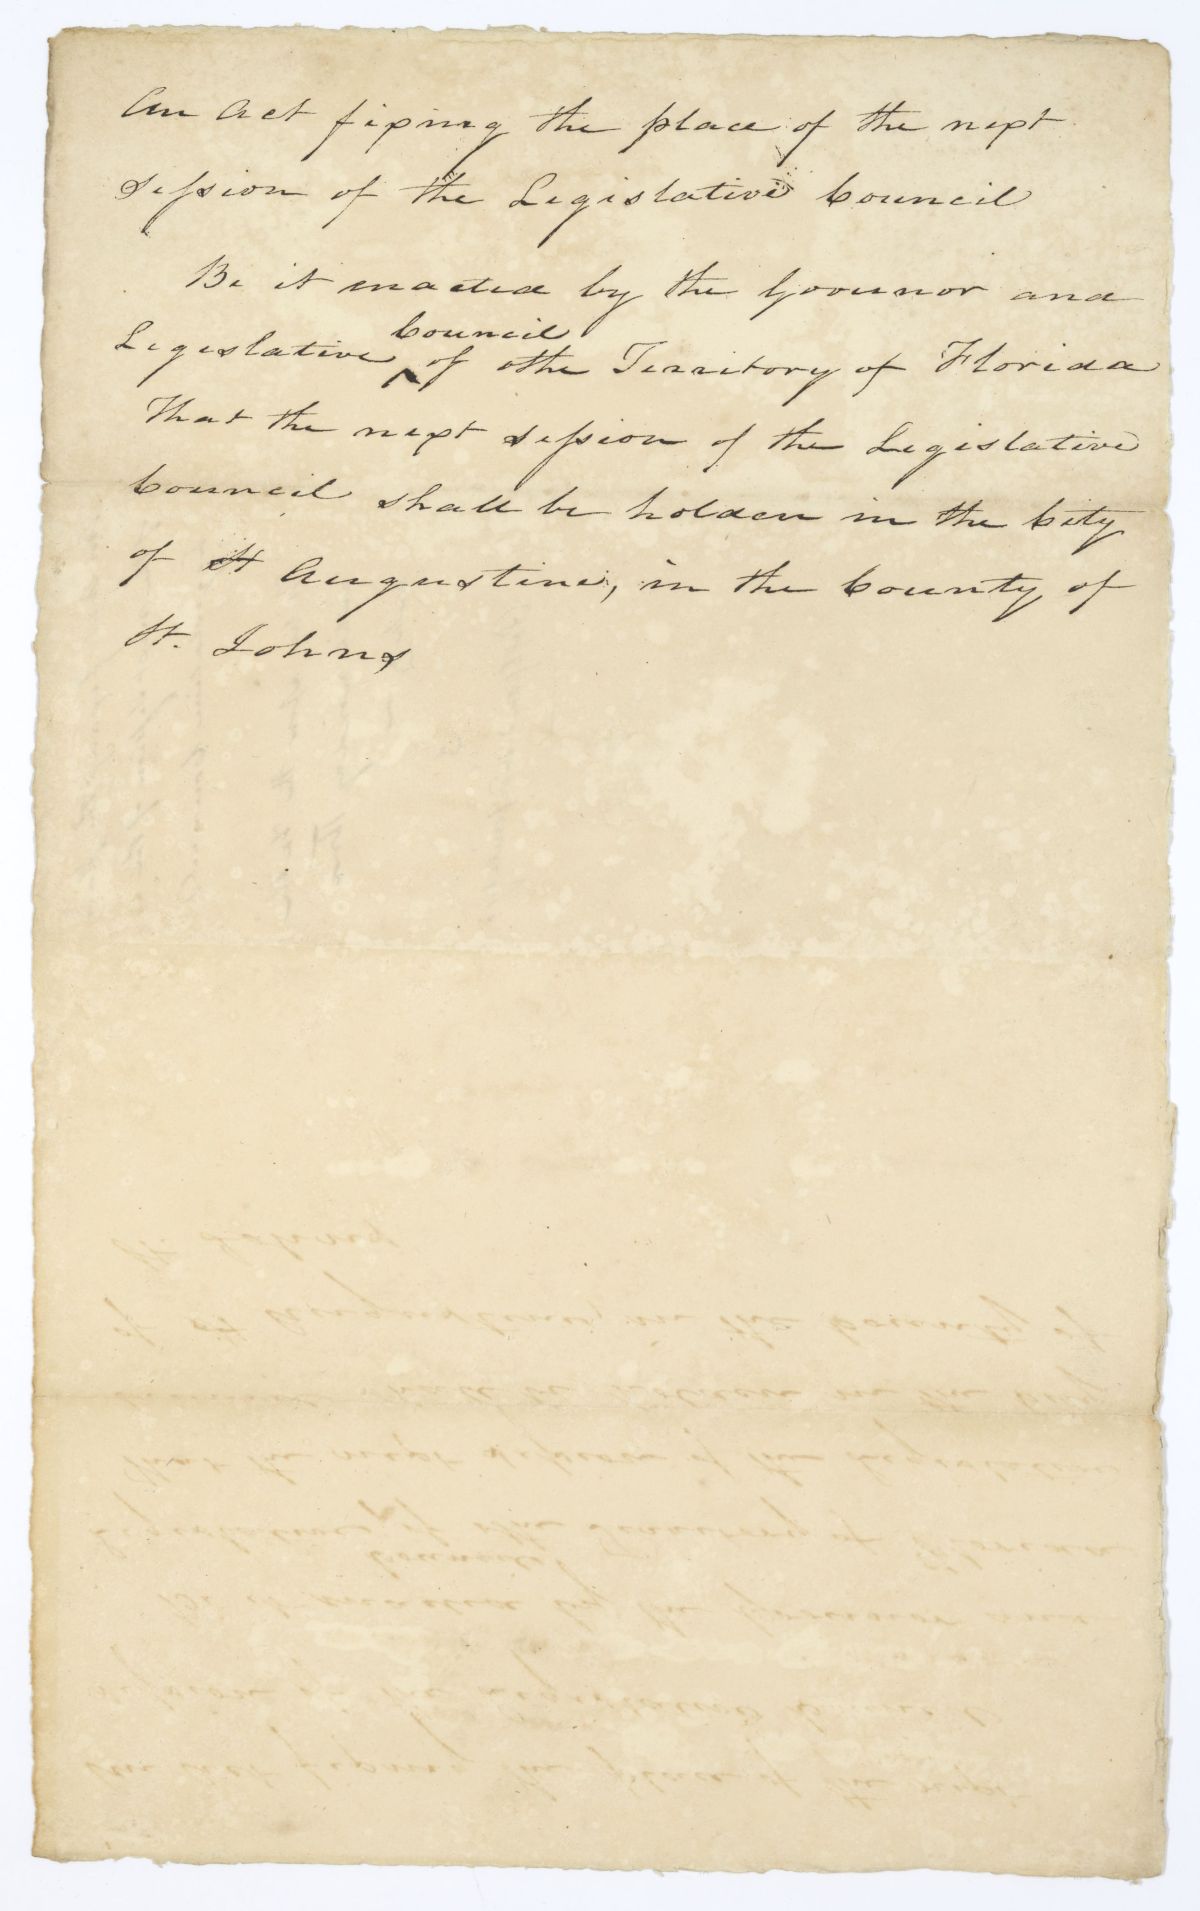 An Act fixing the place of the next
session of the Legislative Council
Be it enacted by the Governor and
Council
Legislative ^ of the Territory of Florida
That the next session of the Legislative
Council shall be holden in the City
of St Augustine, in the County of
St. Johns